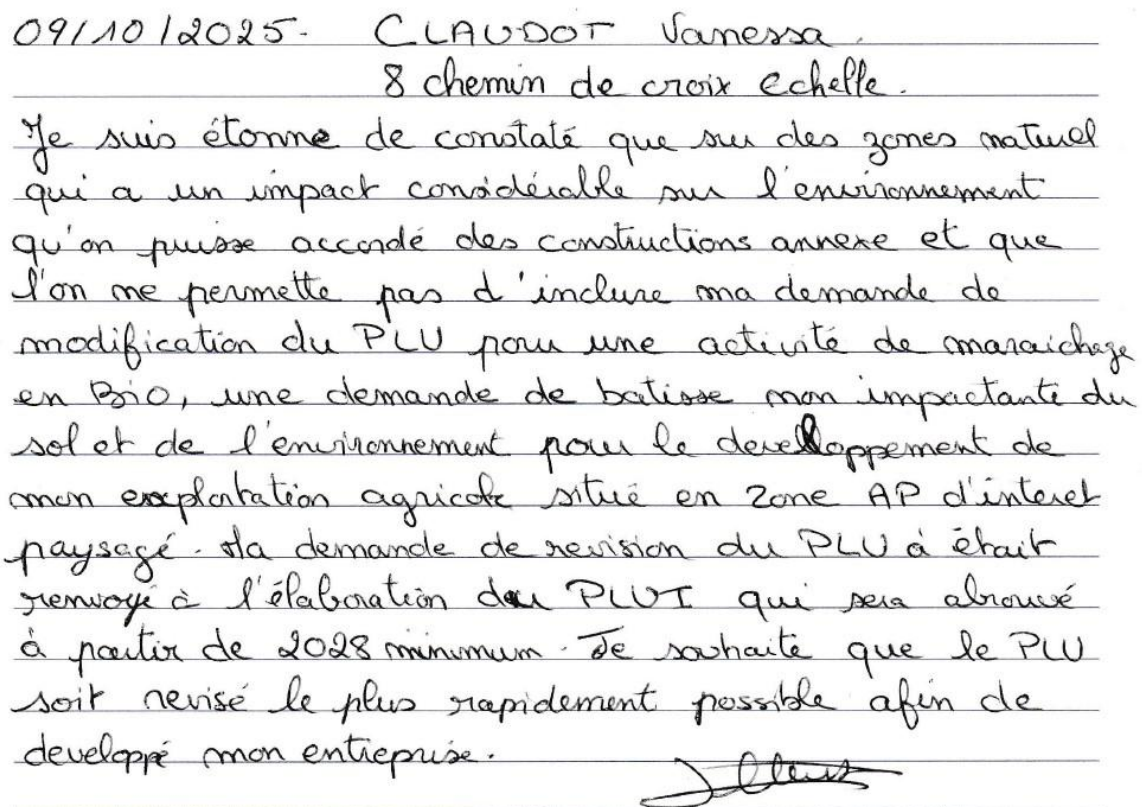 09/10/2025. CLAUDOT Vanessa.
8 chemin de croix echelle.
Je suis étonné de constaté que sur des zones naturel
qui a un impact considérable sur l'environnement
qu'on puisse accordé des constructions annexe et que
l'on me permette pas d'inclure ma demande de
modification du PLU pour une activité de maraichage
en Bio, une demande de batisse non impactante du
sol et de l'environnement pour le developpement de
mon exploitation agricole situé en zone AP d'interet
paysagé. Ma demande de revision du PLU à était
renvoyé à l'élaboration du PLUI qui sera
à partir de 2028 minimum. Je souhaite que le PLU
soit revisé le plus rapidement possible afin de
developpé mon entreprise.